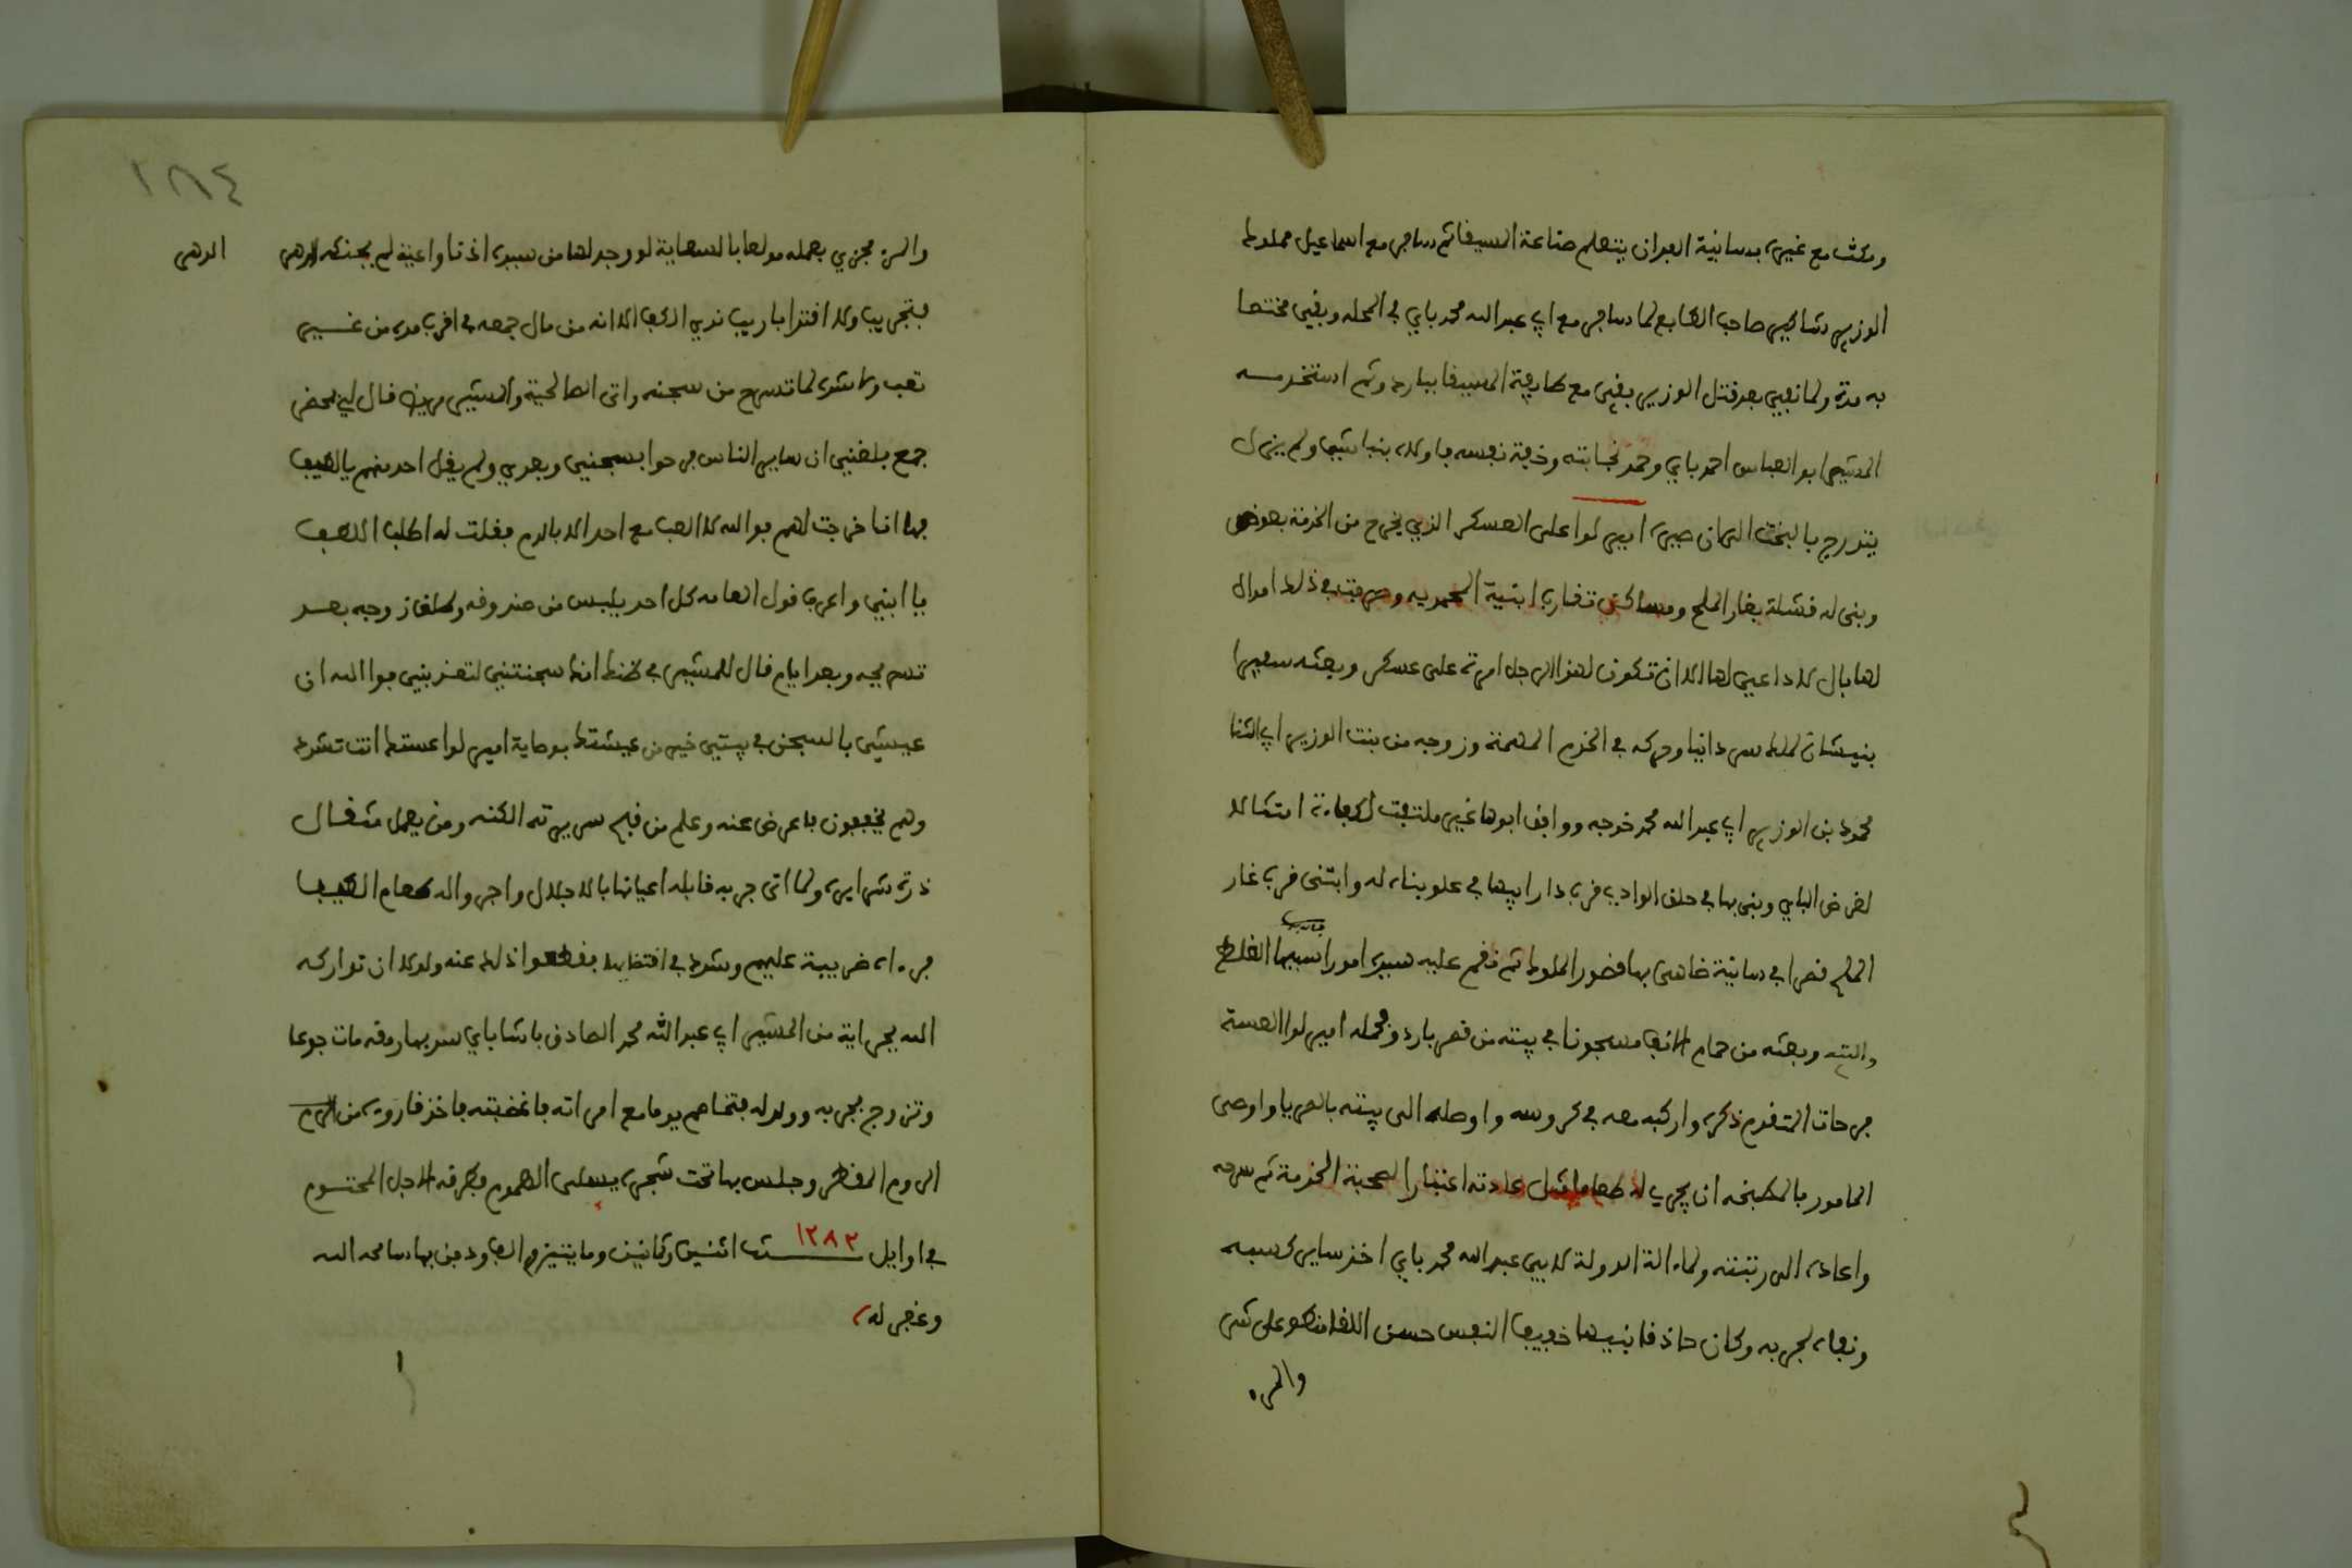 ومكث مع غيره بسانية العمران يتعلم صناعة السيفا ثم سافر مع اسماعيل مملوك
الوزير شاكير صاحب الطابع لما سافر مع ابي عبد الله محمد باي في المحله وبقي مختصا
به مدة ولما نفي بعد قتل الوزير بقي مع طايفة السيفا بباردو ثم استخدمه
المشير ابو العباس احمد باي وحمد نجابته وخفة نفسه واولاه بنباشيا ولم يزل
يتدرج بالبخت الى ان صيره امير لوا على العسكر الذي يخرج من الخدمة بعوض
وبنى له قشلة بغار الملح ومساكن تقارب ابنية المحمديه وصرفت في ذلك اموال
لها بال لا داعي لها الا ان تكون لهذا الرجل امرة على عسكر وبعثه سفيرا
بنيشان لملك سردانيا وحركه في الخدم المهمة وزوجه من بنت الوزير ابي الثنا
محمود بن الوزير ابي عبد الله محمد خوجه ووافق ابوها غير ملتفت لكفاءة امتثالا
لغرض الباي وبنى بها في حلق الوادي قرب دار ابيها في علو بناه له وابتنى قرب غار
الملح قصرا في سانية ضاهى بها قصور الملوك ثم نقم عليه سيده امورا سببها الغلط
والتيه وبعثه من حمام الانف مسجونا في بيته من قصر باردو وحمله امير لوا العسة
فرحات المتقدم ذكره واركبه معه في كروسه واوصله الى بيته بالسرايا واوصى
المامور بالمطبخه ان يجري له طعاما مثل عادته اعتبارا لصحبة الخدمة ثم سرحه
واعاده الى رتبته ولما الت الدولة لابي عبد الله محمد باي اخذ ساير كسبه
ونفاه لجربه وكان حاذقا نبيها خفيف النفس حسن اللقا منطو على شر
والمره
١٨٤
والمرء مجزي بعمله مولعا بالسعاية لو وجد لها من سيده اذنا واعية لم يحنكه الدهر الدهر
بتجريب ولا اقترا باريب ندي الكف الا انه من مال جمعه في اقرب مده من غير
تعب ولا شره لما تسرح من سجنه واتى الصالحية والمشير مريض قال لي بمحضر
جمع بلغني ان ساير الناس فرحوا بسجني وبعدي ولم يقل احد منهم يالطيف
فها انا خرجت لهم فوالله لا العب مع احد الا بالدم فقلت له اطلب اللطف
يا ابني واعرف قول العامه كل احد يلبس من صندوقه وطلق زوجه بعد
تسريحه وبعد ايام قال للمشير في ظنك انك سجنتني لتعذبني فوالله ان
عيشتي بالسجن في بيتي خير من عيشتك بوصاية امير لوا عستك انت تشرط
وهم يخففون فاعرض عنه وعلم من قبح سريرته الكنه ومن يعمل مثقال
ذرة شرا يره ولما اتى جربه قابله اعيانها بالاجلال واجروا له طعام الضيف
فرءاه ضريبة عليهم وشرط في اقتضايه فقطعوا ذلك عنه ولولا ان تداركه
الله بجراية من المشير ابي عبد الله محمد الصادق باشا باي سد بها رمقه مات جوعا
وتزوج بجربه وولد له فتخاصم يوما مع امراته فاغضبته فاخذ قارورة من الروم
الروم المقطر وجلس بها تحت شجره يسلي الهموم فطرقه الاجل المحتوم
في اوايل ١٢٨٢ سنة اثنين وثمانين وماتين والف ودفن بها سامحه الله
وغفر له